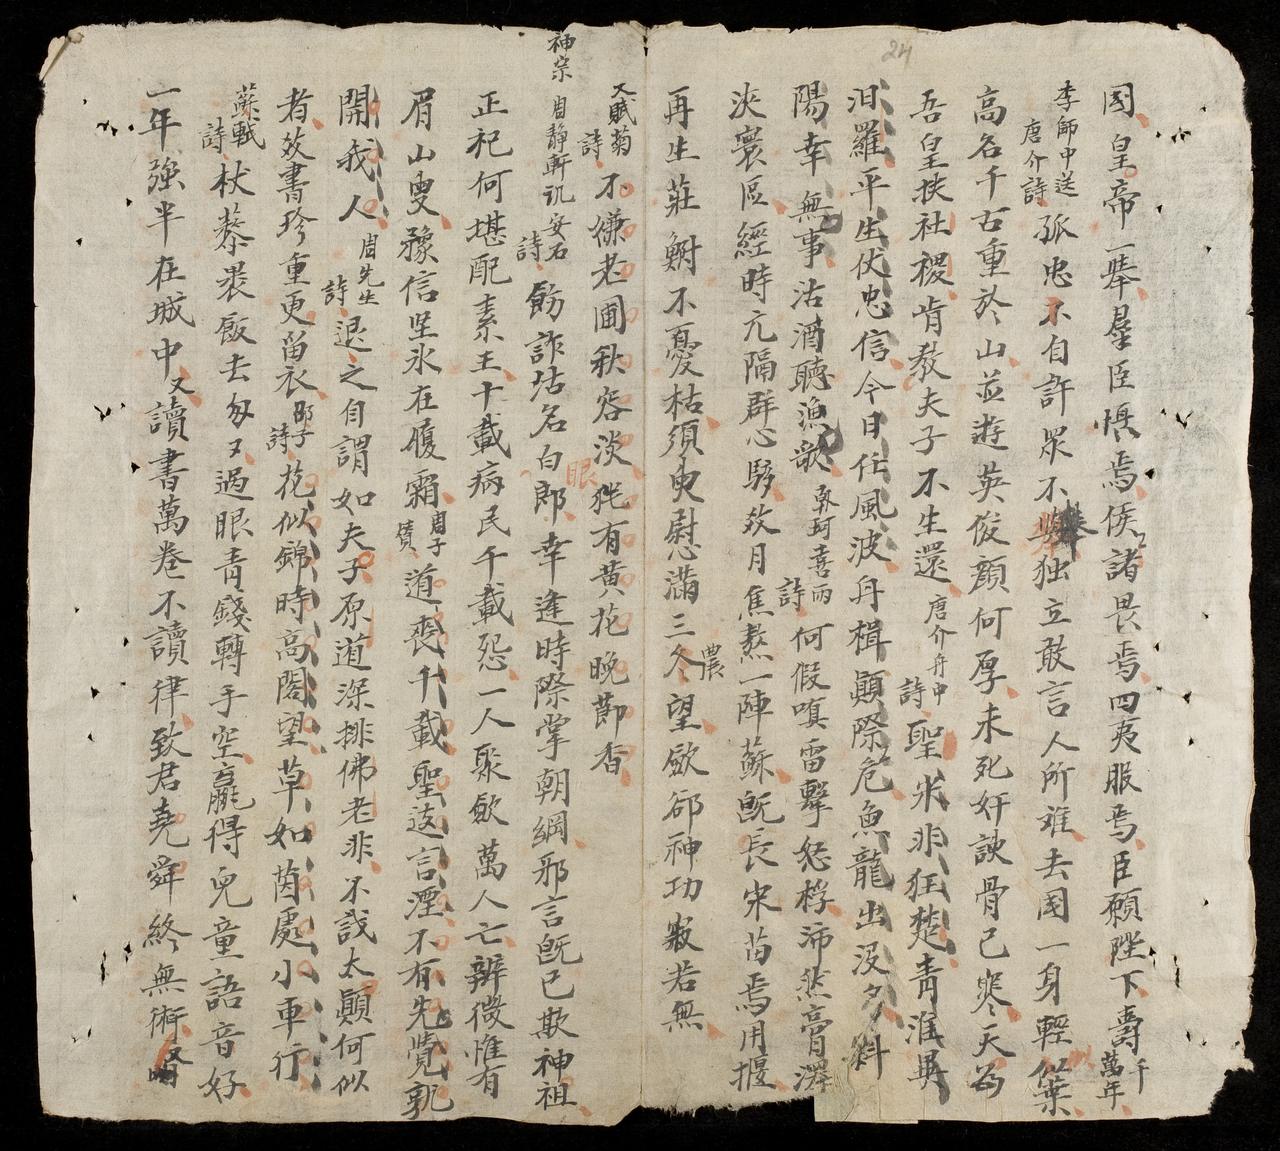 24
國皇帝一舉羣臣惧焉侯諸畏焉四夷服焉臣願陛下壽千萬年
李師中送唐介詩孤忠不自許眾不與独立敢言人所难去國一身輕似葉
高名千古重於山並遊英俊顏何厚未死奸諛骨已寒天為
吾皇扶社稷肯教夫子不生還唐介舟中詩聖宋非狂楚青淮異
汨羅平生伏忠信今日任風波舟楫顛際危魚龍出没夕斜
陽幸無事沽酒聽漁歌 喜雨詩何假嗔雷擊怒桴沛然膏澤
浹寰區經時亢隔群心 月焦熬一陣蘇既長宋苗焉用揠
再生莊鮒不憂枯須臾慰滿三農冬望歛却神功寂若無
又賦菊詩不嫌老圃秋容淡 有黃花晚節香
神宗 周静軒讥安石詩飭詐沽名白眼郎幸逢時際掌朝綱邪言既已欺神祖
正祀何堪配素王十載病民千載怨一人聚歛萬人亡辨微惟有
眉山叟豫信坚冰在履霜周子 道喪千載聖逺言湮不有先覺孰
開我人周先生詩退之自謂如夫子原道深排佛老非不識太顛何似
者 書珍重更留衣邵子詩花似錦時高閣望草如茵處小車行
蘇軾詩杖藜裹飯去匆又過眼青錢轉手空贏得兒童語音好
一年強半在城中又讀書萬卷不讀律致君堯舜終無術